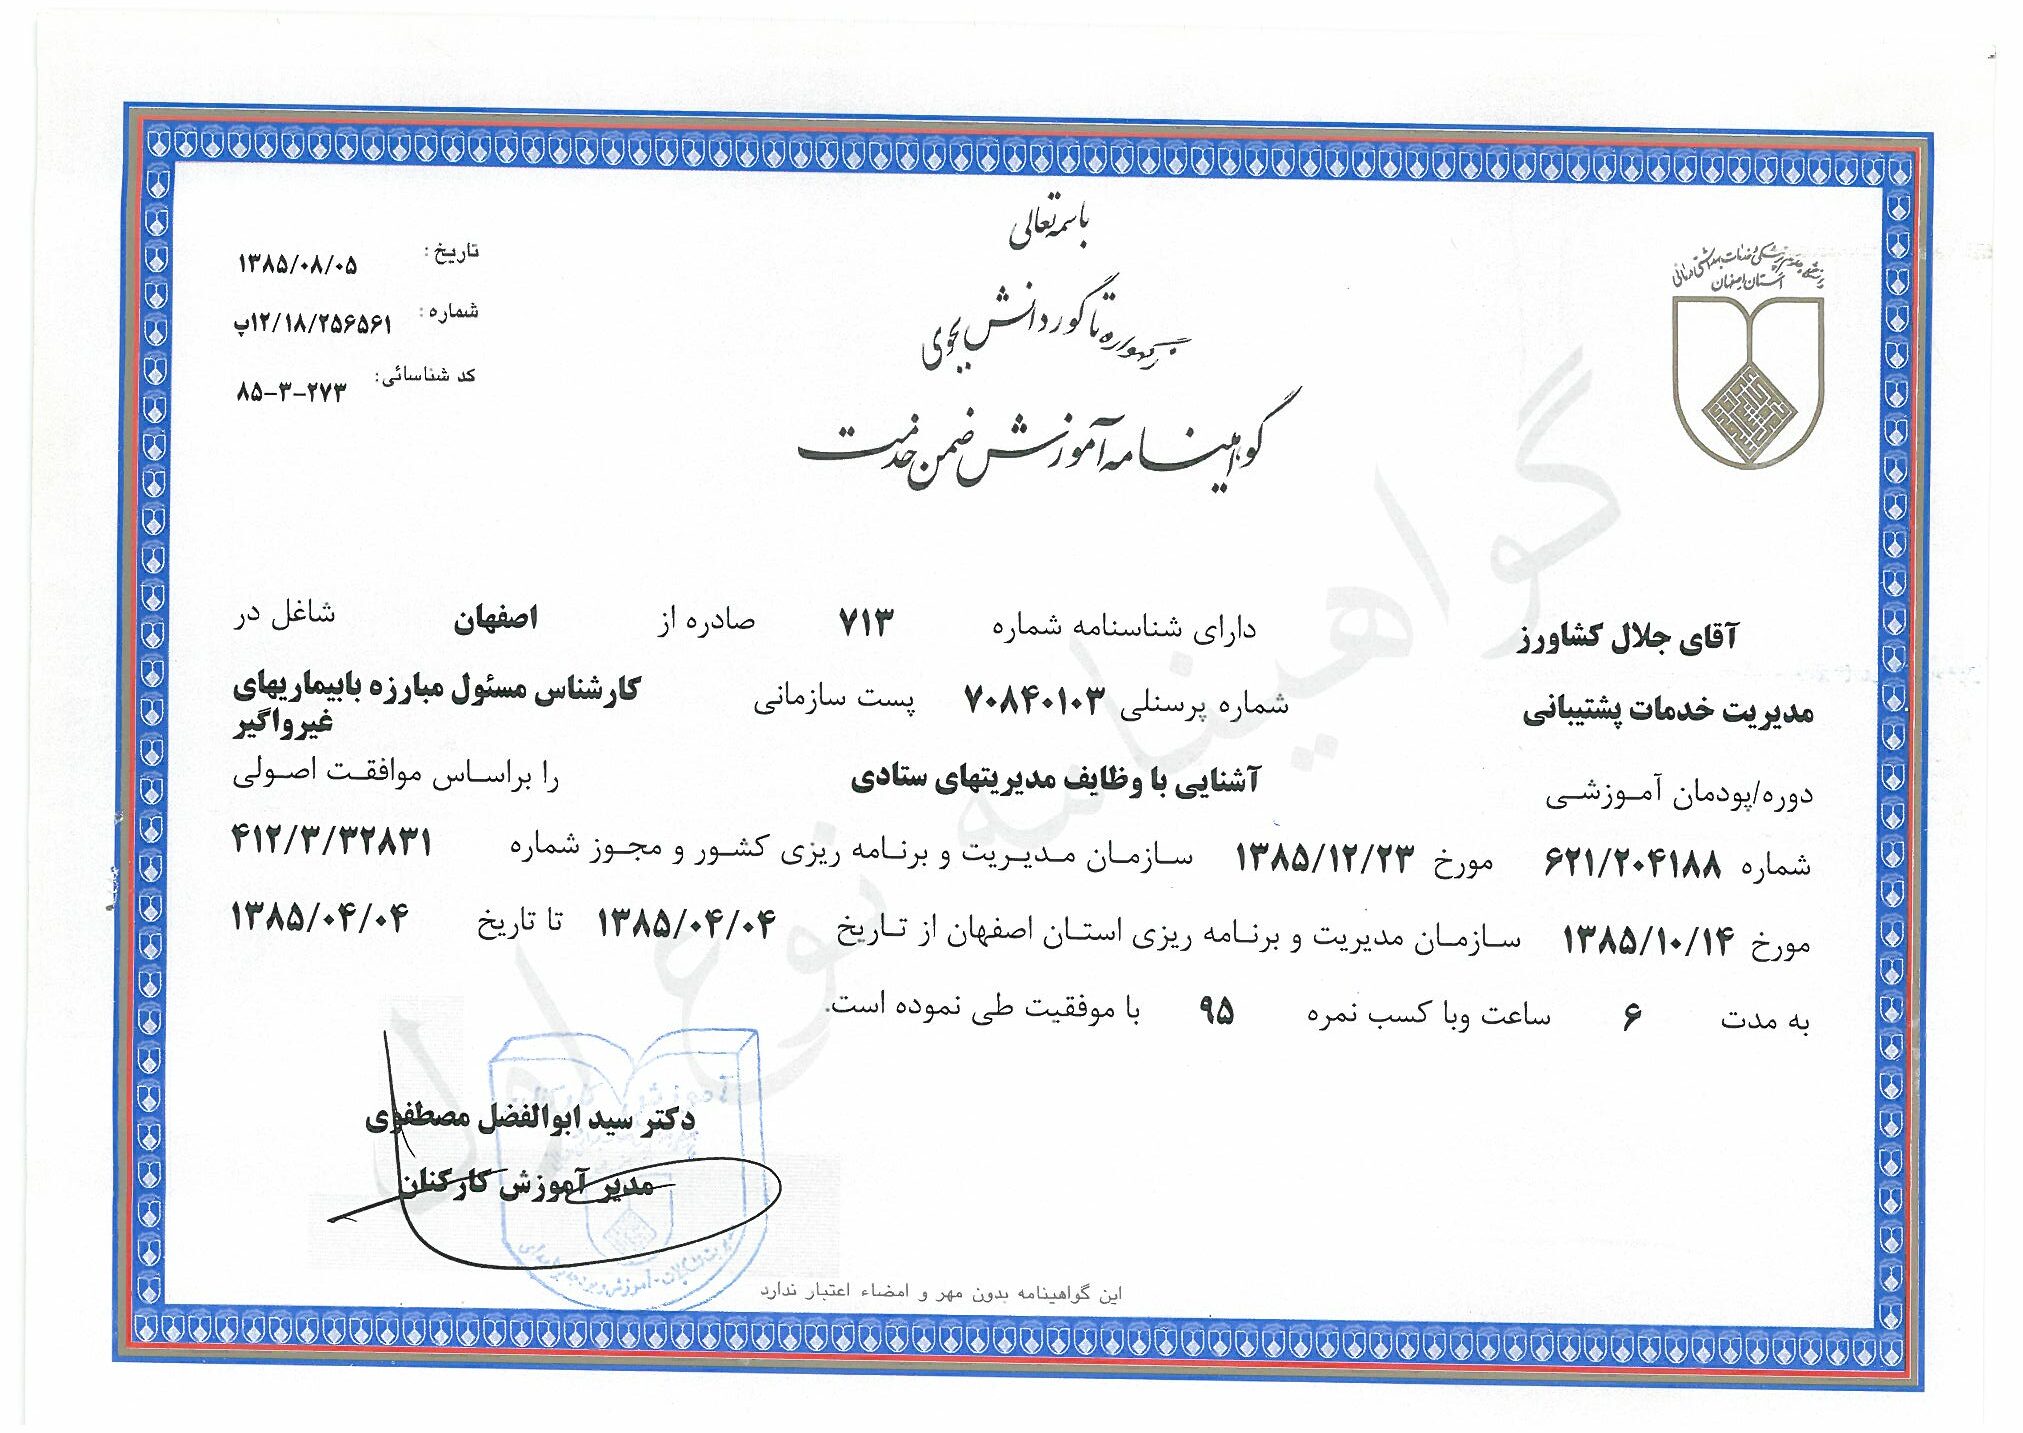 باسمه تعالی
ز گهواره تا گور دانش بجوی
گواهینامه آموزش ضمن خدمت
دانشگاه علوم پزشکی و خدمات بهداشتی درمانی
استان اصفهان
تاریخ: ۱۳۸۵/۰۸/۰۵
شماره: ۱۲/۱۸/۲۵۶۵۶۱پ
کد شناسائی: ۸۵-۳-۲۷۳
آقای جلال کشاورز دارای شناسنامه شماره ۷۱۳ صادره از اصفهان شاغل در
مدیریت خدمات پشتیبانی شماره پرسنلی ۷۰۸۴۰۱۰۳ پست سازمانی کارشناس مسئول مبارزه بابیماریهای
غیرواگیر
دوره/پودمان آموزشی آشنایی با وظایف مدیریتهای ستادی را براساس موافقت اصولی
شماره ۶۲۱/۲۰۴۱۸۸ مورخ ۱۳۸۵/۱۲/۲۳ سازمان مدیریت و برنامه ریزی کشور و مجوز شماره ۴۱۲/۳/۳۲۸۳۱
مورخ ۱۳۸۵/۱۰/۱۴ سازمان مدیریت و برنامه ریزی استان اصفهان از تاریخ ۱۳۸۵/۰۴/۰۴ تا تاریخ ۱۳۸۵/۰۴/۰۴
به مدت ۶ ساعت وبا کسب نمره ۹۵ با موفقیت طی نموده است.
گواهینامه نوع اول
دکتر سید ابوالفضل مصطفوی
مدیر آموزش کارکنان
این گواهینامه بدون مهر و امضاء اعتبار ندارد